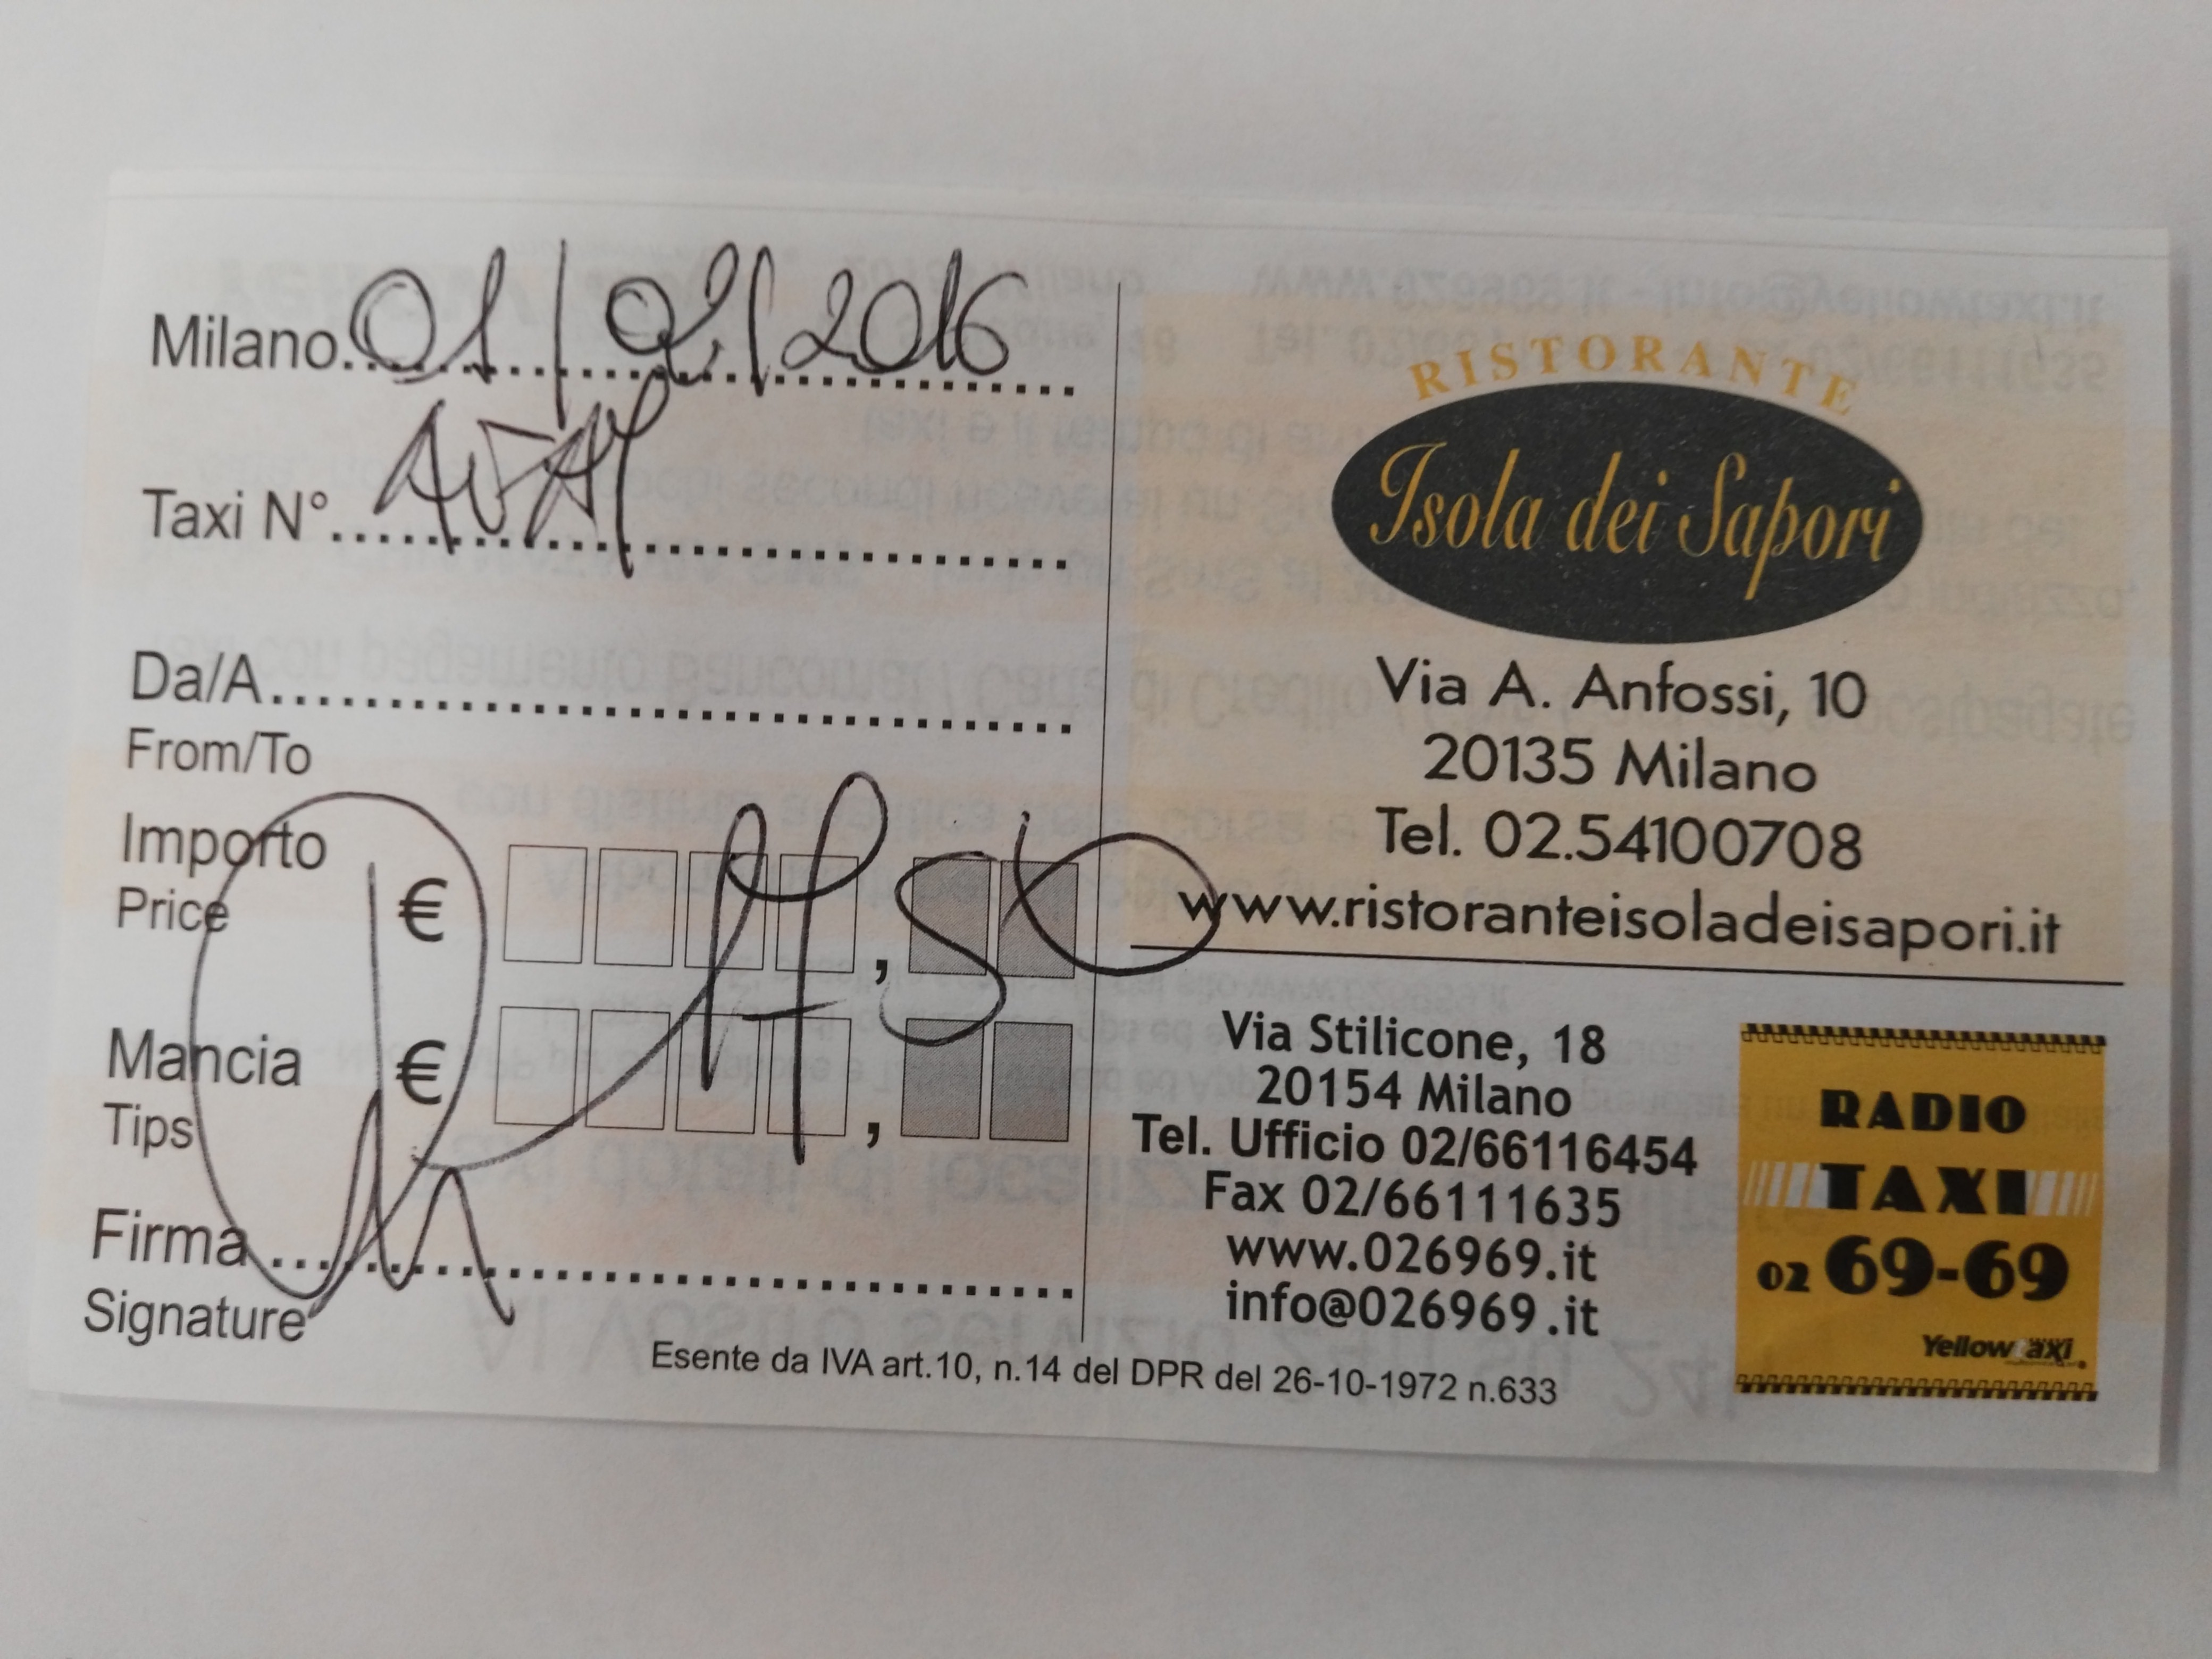 Milano 01/02/2016
Taxi N°
Da/A
From/To
Importo
Price €
,50
Mancia
Tips € ,
Firma
Signature
RISTORANTE
Isola dei Sapori
Via A. Anfossi, 10
20135 Milano
Tel. 02.54100708
www.ristoranteisoladeisapori.it
Via Stilicone, 18
20154 Milano
Tel. Ufficio 02/66116454
Fax 02/66111635
www.026969.it
info@026969.it
RADIO
TAXI
02 69-69
Yellow taxi
Esente da IVA art.10, n.14 del DPR del 26-10-1972 n.633